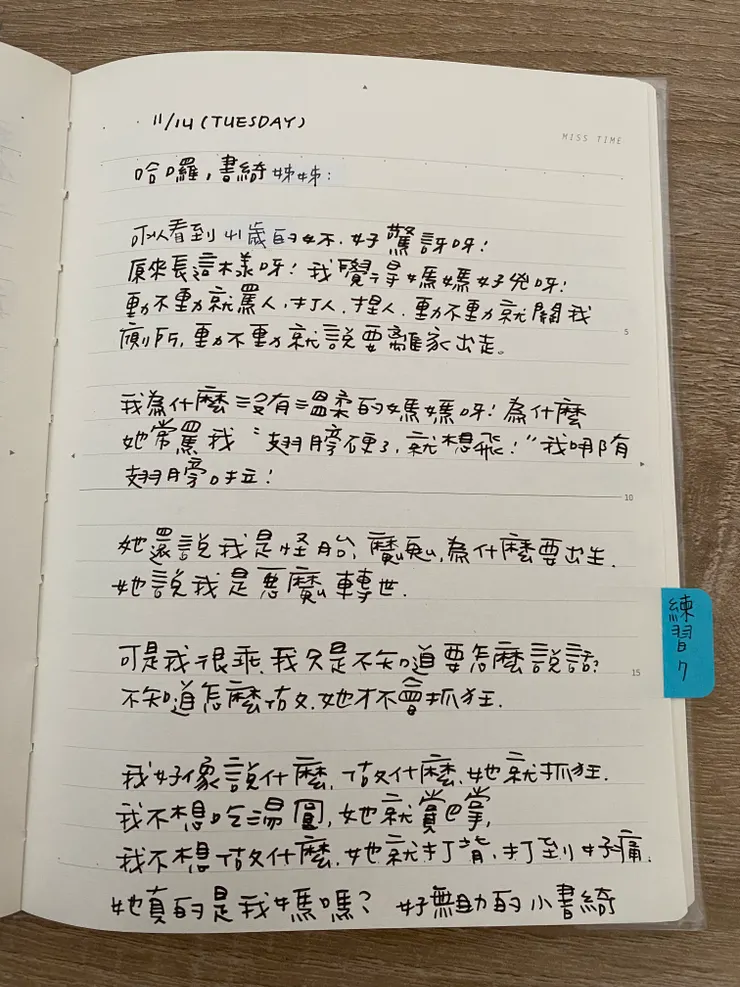 11/14 (TUESDAY)
MISS TIME
哈囉,書綺姊姊:
可以看到41歲的妳.好驚訝呀!
原來長這樣呀!我覺得媽媽好兇呀!
動不動就罵人.打人.捏人.動不動就關我
廁所,動不動就說要離家出走。
5
我為什麼沒有溫柔的媽媽呀!為什麼
她常罵我"翅膀硬了,就想飛!"我哪有
翅膀啦!
10
她還說我是怪胎,魔鬼,為什麼要出生.
她說我是惡魔轉世.
練習7
可是我很乖.我只是不知道要怎麼說話?
15
不知道怎麼做.她才不會抓狂.
我好像說什麼,做什麼.她就抓狂.
我不想吃湯圓,她就賞巴掌,
我不想做什麼.她就打背.打到好痛.
她真的是我媽嗎? 好無助的小書綺